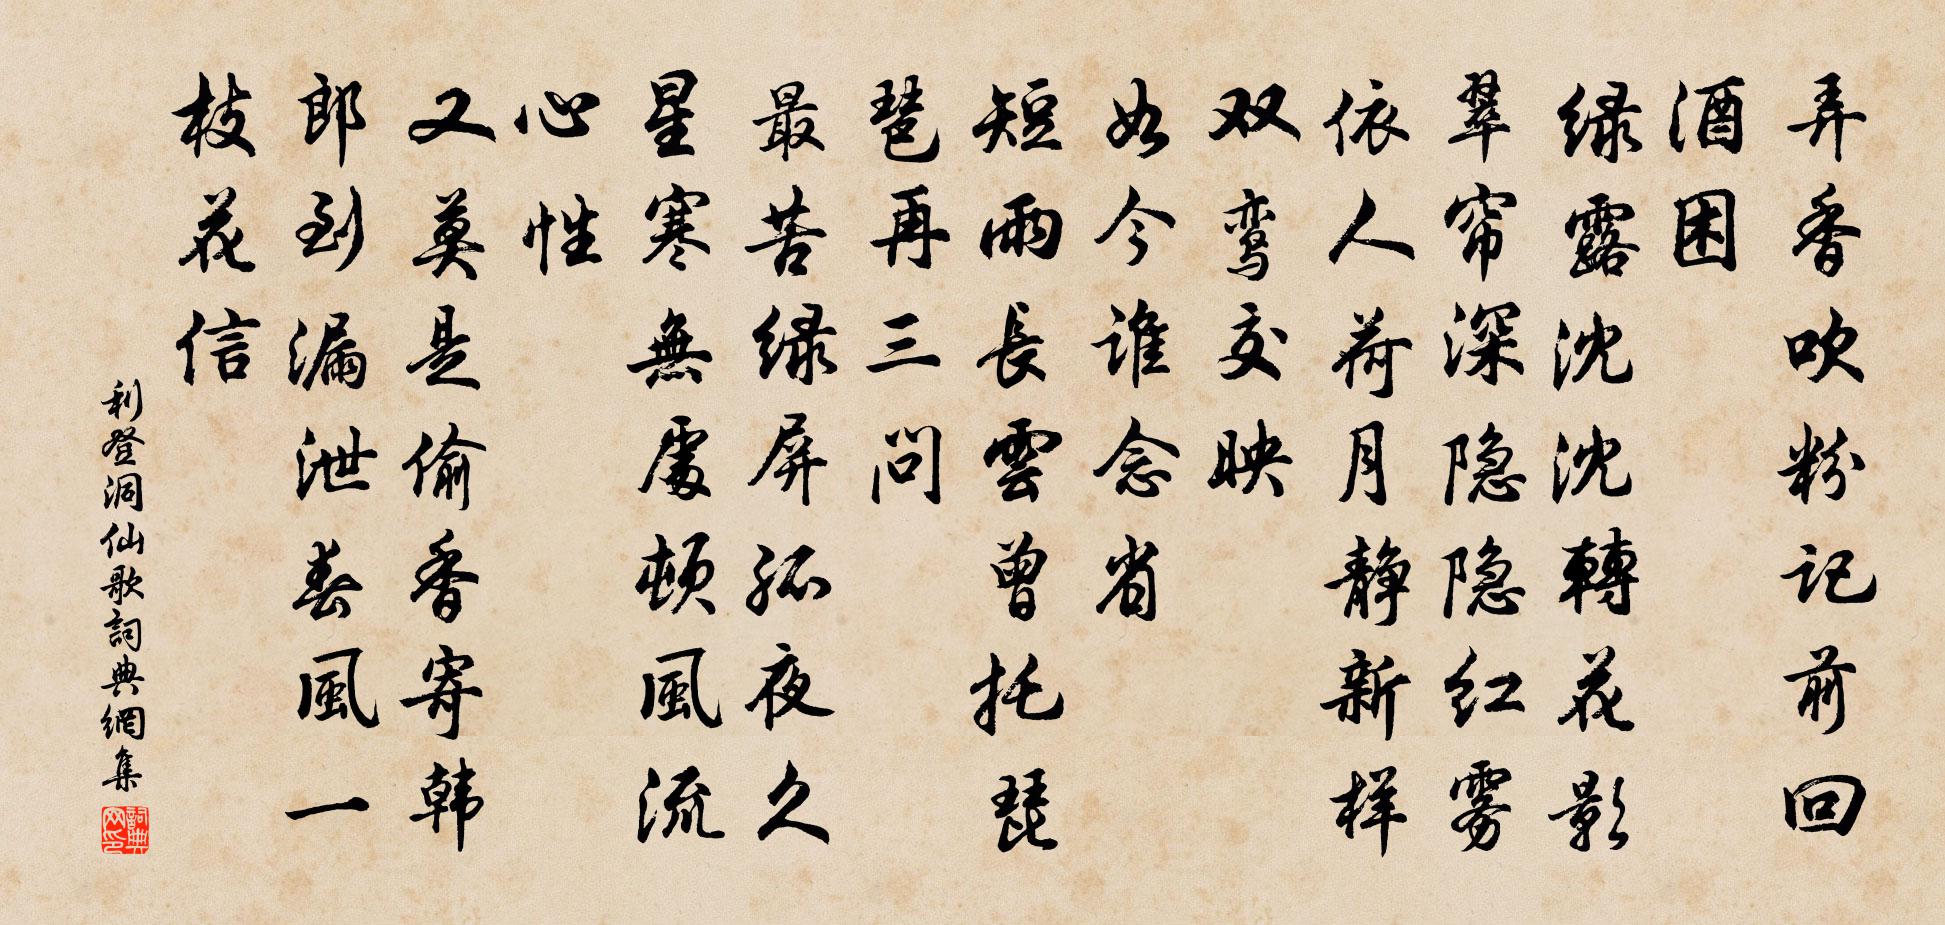 弄香吹粉记前回
酒困
绿露沈沈轉花影
翠帘深隐隐红雾
依人荷月静新样
双鸾交映
如今谁念省
短雨長雲曾托琵
琶再三问
最苦绿屏孤夜久
星寒無處顿風流
心性
又莫是偷香寄韩
郎到漏泄春風一
枝花信
利登洞仙歌詞典網集
詞典网印